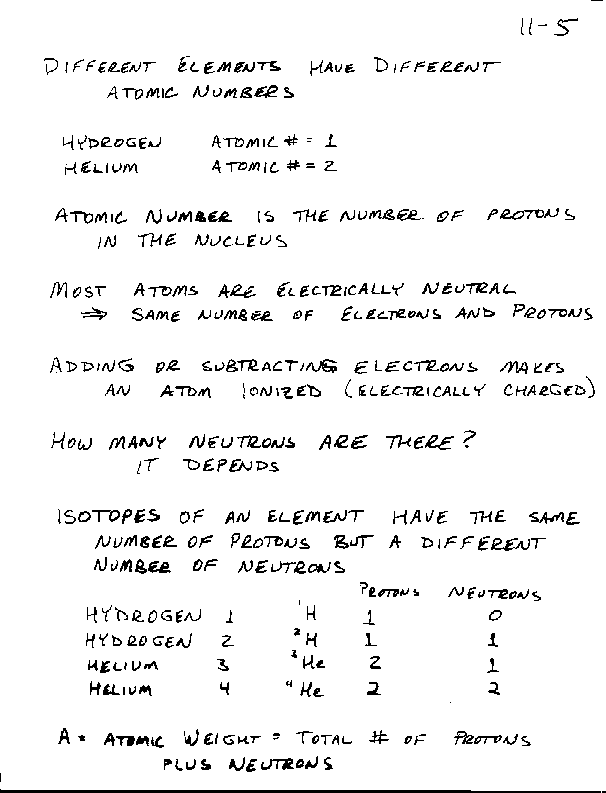 11-5
DIFFERENT ELEMENTS HAVE DIFFERENT
ATOMIC NUMBERS
HYDROGEN ATOMIC # = 1
HELIUM ATOMIC # = 2
ATOMIC NUMBER IS THE NUMBER OF PROTONS
IN THE NUCLEUS
MOST ATOMS ARE ELECTRICALLY NEUTRAL
⇒ SAME NUMBER OF ELECTRONS AND PROTONS
ADDING OR SUBTRACTING ELECTRONS MAKES
AN ATOM IONIZED (ELECTRICALLY CHARGED)
HOW MANY NEUTRONS ARE THERE?
IT DEPENDS
ISOTOPES OF AN ELEMENT HAVE THE SAME
NUMBER OF PROTONS BUT A DIFFERENT
NUMBER OF NEUTRONS
PROTONS NEUTRONS
HYDROGEN 1 ¹H 1 0
HYDROGEN 2 ²H 1 1
HELIUM 3 ³He 2 1
HELIUM 4 ⁴He 2 2
A = ATOMIC WEIGHT = TOTAL # OF PROTONS
PLUS NEUTRONS